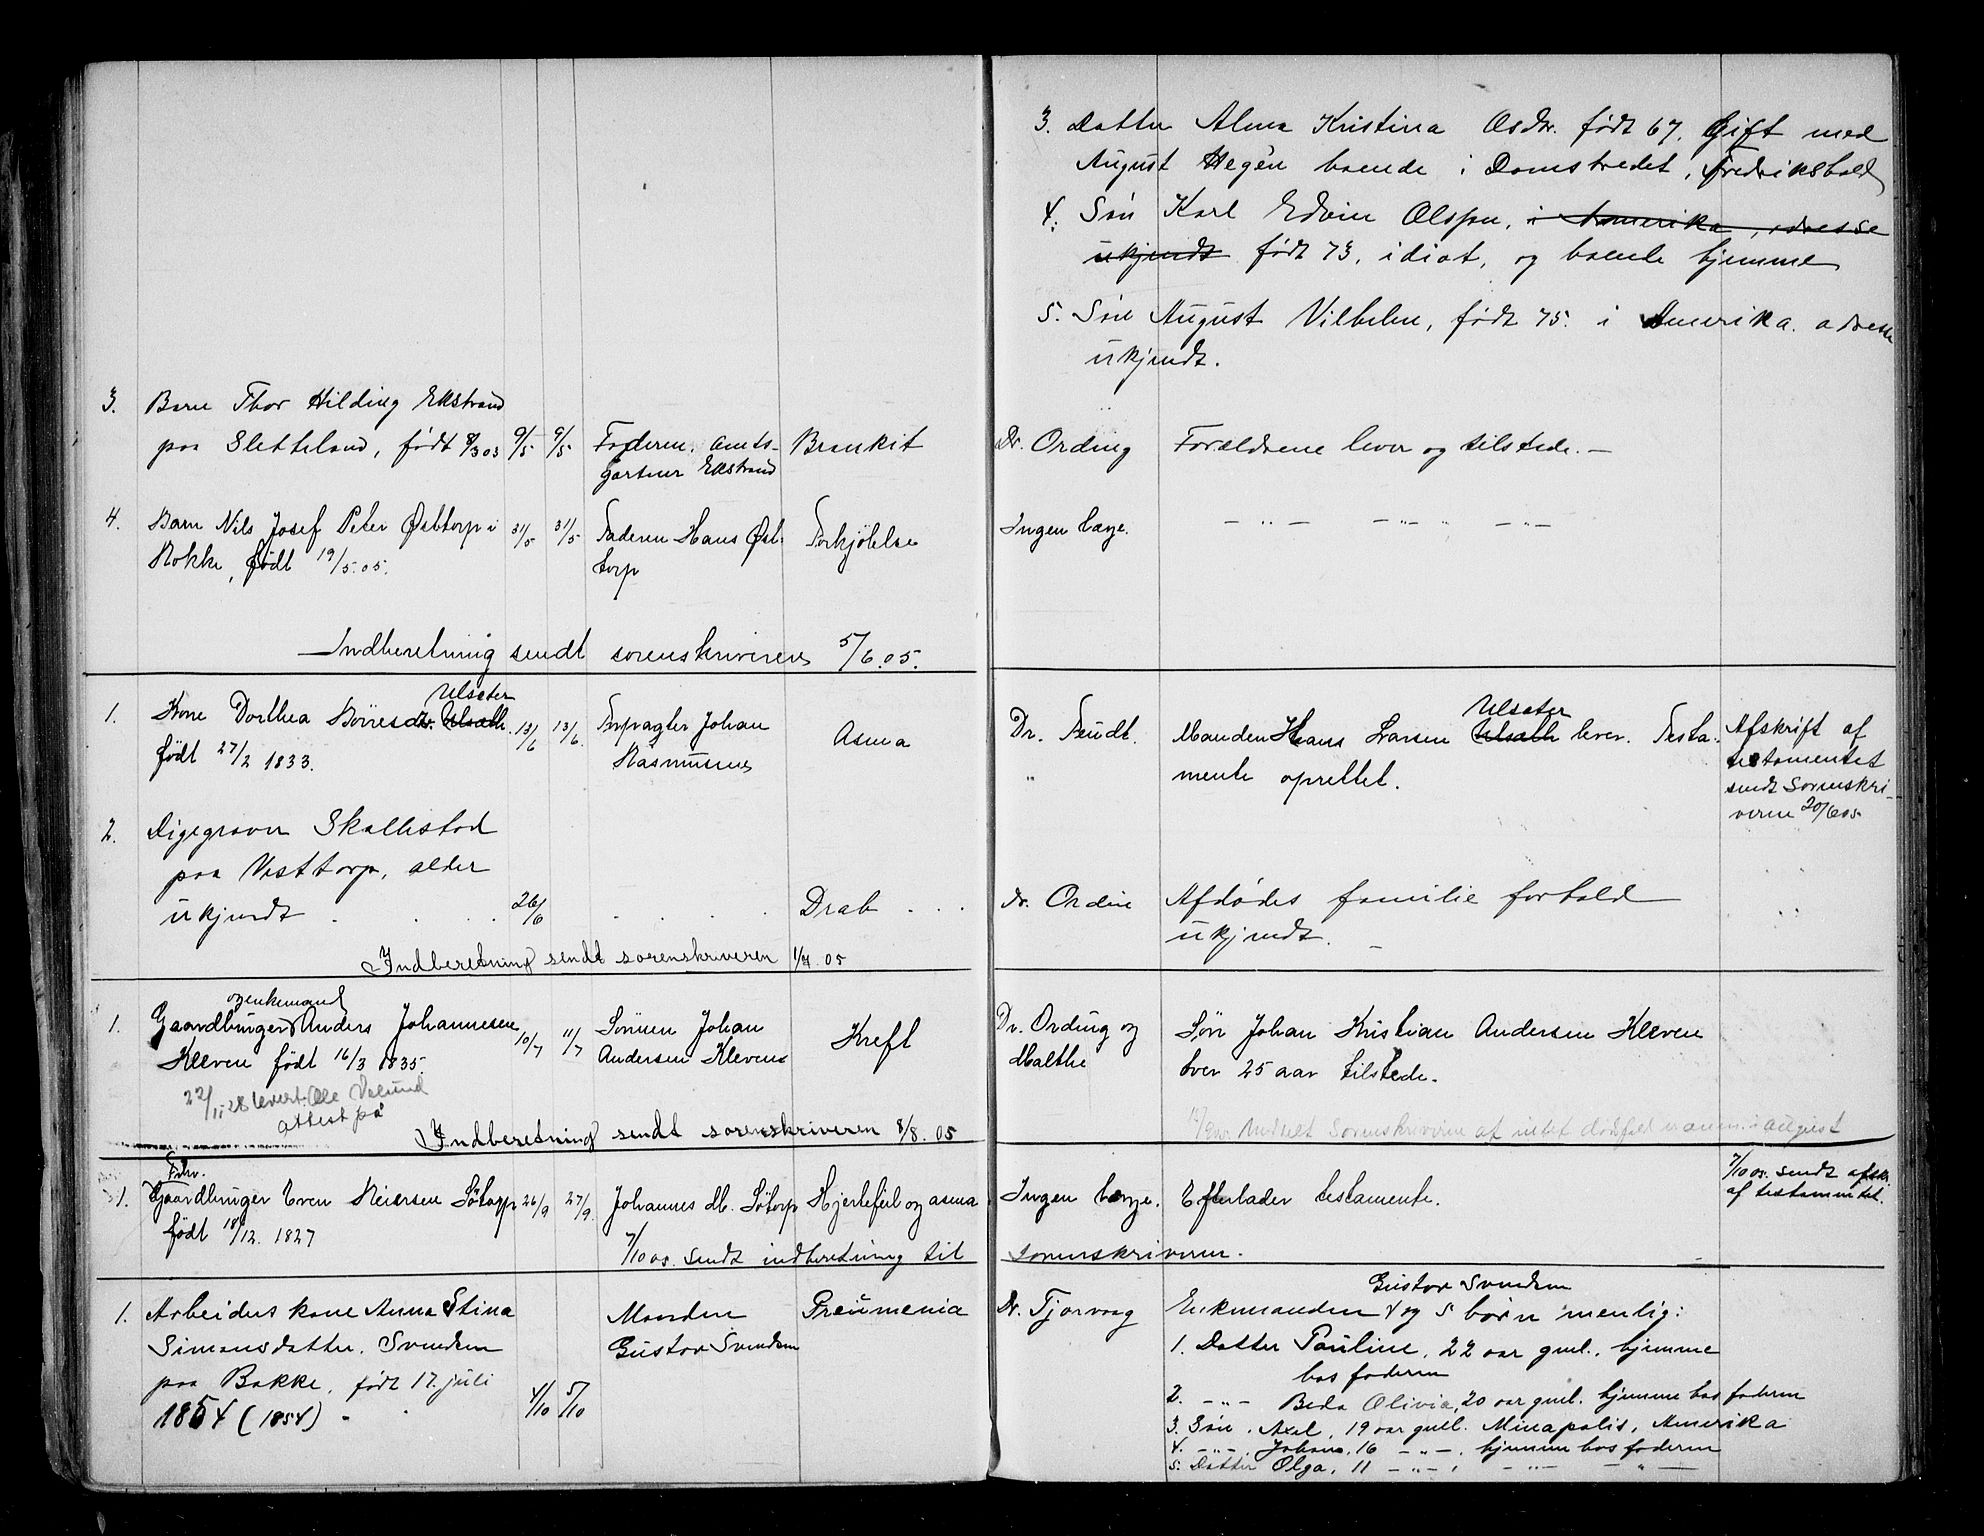 3. Datter Alma Kristina Osdtr. født 67. Gift med
August Hegén boende i Damstredet, Fredrikshald
4. Søn Karl Edvin Olsen, i Amerika, adresse
ukjendt født 73, idiot, og boende hjemme
5. Søn August Vilhelm, født 75. i Amerika. adresse
ukjendt.
3. Barn Thor Hilding Ekstrand
paa Sletteland, født 8/3 03 9/5 9/5 Faderen, amts- Bronkit Dr. Ording Forældrene lever og tilstede. —
gartner Ekstrand
4. Barn Nils Josef Peter Østtorp i 31/5 31/5 Faderen Hans Øst- Forkjölelse Ingen læge. — " — — " — " — " —
Rokke, født 19/5.05. torp
Indberetning sendt sorenskriveren 5/6.05.
Ulsæter
1. Kone Dorthea Börresdtr. Ulsæth. 13/6 13/6. Forpagter Johan Asma Dr. Feudt.
født 27/2 1833. Rasmussen "
Ulsæter
Manden Hans Larsen Ulsæth lever. Testa-
mente oprettet.
Afskrift af
testamentet
sendt Sorenskri-
veren 20/6 05
2. Digegraver Skallestad
paa Vesttorp, alder
ukjendt . . . 26/6 . . . . Drab . . . Dr. Ordin Afdødes familie forhold
ukjendt. —
Indberetning sendt sorenskriveren 1/7. 05
og enkemand
1. Gaardbruger Anders Johannesen 10/7 11/7 Sönnen Johan Kreft Dr. Ording og Søn Johan Kristian Andersen Kleven
Kleven født 16/3 1835. Andersen Klevens Malthe over 25 aar tilstede.
22/11 28 levert Ole
attest på
Indberetning sendt sorenskriveren 8/8. 05
Sorenskriveren af intet dødsfald i august
Fhv.
1. Gaardbruger Even Reiersen Sötorp 26/9 27/9. Johannes M. Sötorp Hjertefeil og asma Ingen læge. Efterlader testamente.
født 18/12. 1827
7/10 05. sendt afskr.
af testamentet.
7/10 05. sendt indberetning til sorenskriveren.
1. Arbeiders kone Anna Stina Manden Pneumenia Dr. Tjorvaag
Simonsdatter. Svendsen Gustav Svendsen
paa Bakke, født 17. juli
1854 (1854) . . 4/10 5/10
Gustav Svendsen
Enkemanden og 5 børn nemlig:
1. Datter Pauline, 22 aar gml., hjemme
hos faderen
2. — " — Beda Olivia, 20 aar gml. hjemme hos faderen
3. Søn. Axel, 19 aar gml. Minapolis, Amerika
4. — " —. Johan, 16 — " —, hjemme hos faderen
5. Datter Olga, 11 — " —, — " — — " —